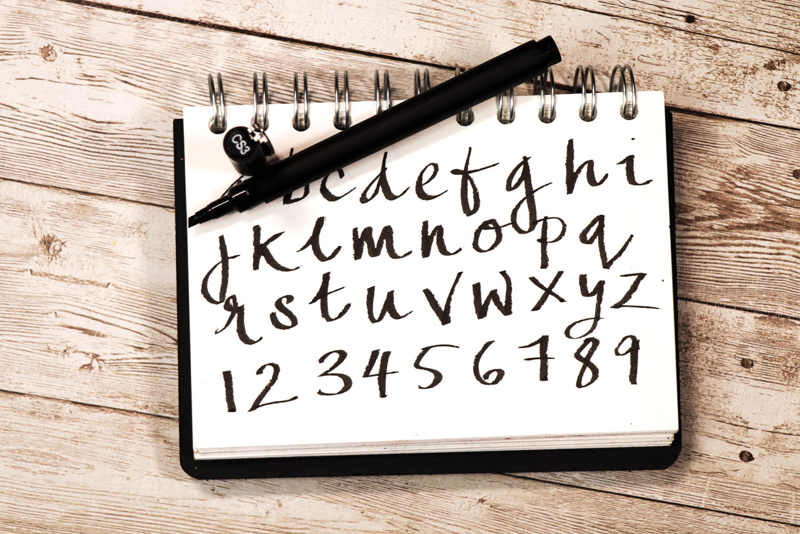 CS3
b c d e f g h i
j k l m n o p q
r s t u v w x y z
1 2 3 4 5 6 7 8 9